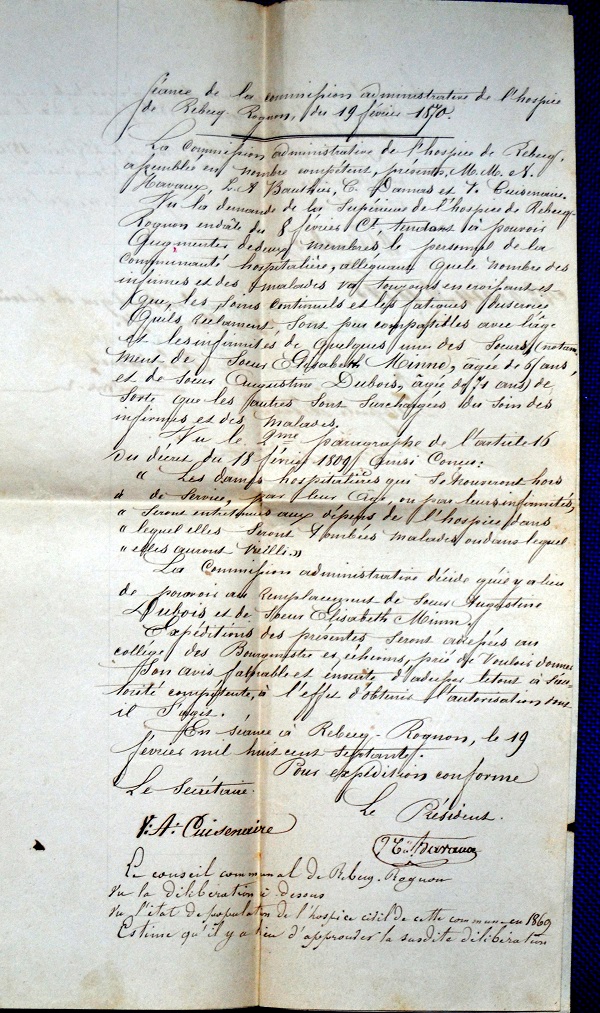 Séance de la commission administrative de l'hospice
de Rebecq-Rognon, du 19 février 1870.
La Commission administrative de l'hospice de Rebecq,
assemblée en nombre compétent, présents M.M. A.
Havaux, L. A. Bauthier, C. Damas et V. Cuisenaire.
Vu la demande de la Supérieure de l'hospice de Rebecq-
Rognon en date du 8 février Ct. tendant à pouvoir
augmenter de deux membres le personnel de la
Communauté hospitalière, alléguant que le nombre des
infirmes et des malades va toujours en croissant et
que, les soins continuels et les fatigues du service
qu'ils réclament, sont peu compatibles avec l'âge
et les infirmités de quelques unes des Soeurs, (notam-
ment de Soeur Elisabeth Minne, âgée de 6 ans,
et de Soeur Augustine Dubois, âgée de 71 ans) de
sorte que les autres sont surchargées du soin des
infirmes et des malades.
Vu le 2me paragraphe de l'article 16
du décret du 18 février 1809, ainsi conçu:
" Les dames hospitalières qui se trouveront hors
" de service, par leur âge, ou par leurs infirmités,
" seront entretenues aux dépens de l'hospice dans
" lequel elles seront tombées malades ou dans lequel
" elles auront vieilli. "
La Commission administrative décide qu'il y a lieu
de pourvoir au remplacement de Soeur Augustine
Dubois et de Soeur Elisabeth Minne.
Expéditions des présentes seront adressées au
collège des Bourgmestre et échevins, prié de vouloir donner
son avis favorable et ensuite d'adresser le tout à l'au-
torité compétente, à l'effet d'obtenir l'autorisation dont
il s'agit.
En séance à Rebecq-Rognon, le 19
février mil huit cent septante.
Pour expédition conforme
Le Secrétaire.
Le Président.
V: A: Cuisenaire
Havaux
Le conseil communal de Rebecq-Rognon
Vu la délibération ci-dessus
Vu l'état de population de l'hospice civil de cette commune en 1869
Estime qu'il y a lieu d'approuver la susdite délibération